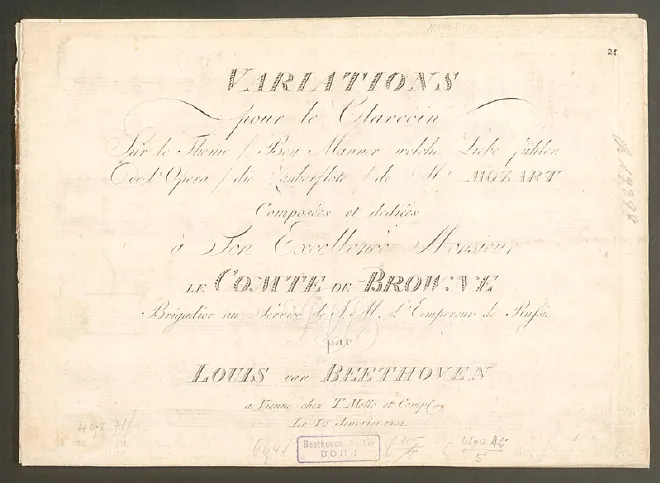 21
VARIATIONS
pour le Clavecin
Sur le Theme / Beÿ Männer welche Liebe fühlen
de l'Opera / die Zauberflöte / de Mr. MOZART
Composées et dediées
à Son Excellence Monsieur
LE COMTE DE BROWNE
Brigadier au Service de S. M. L'Empereur de Russie
par
LOUIS van BEETHOVEN
a Vienne chez T. Mollo et Comp.
Le 1 Janvier 1802.
Beethoven
BONN